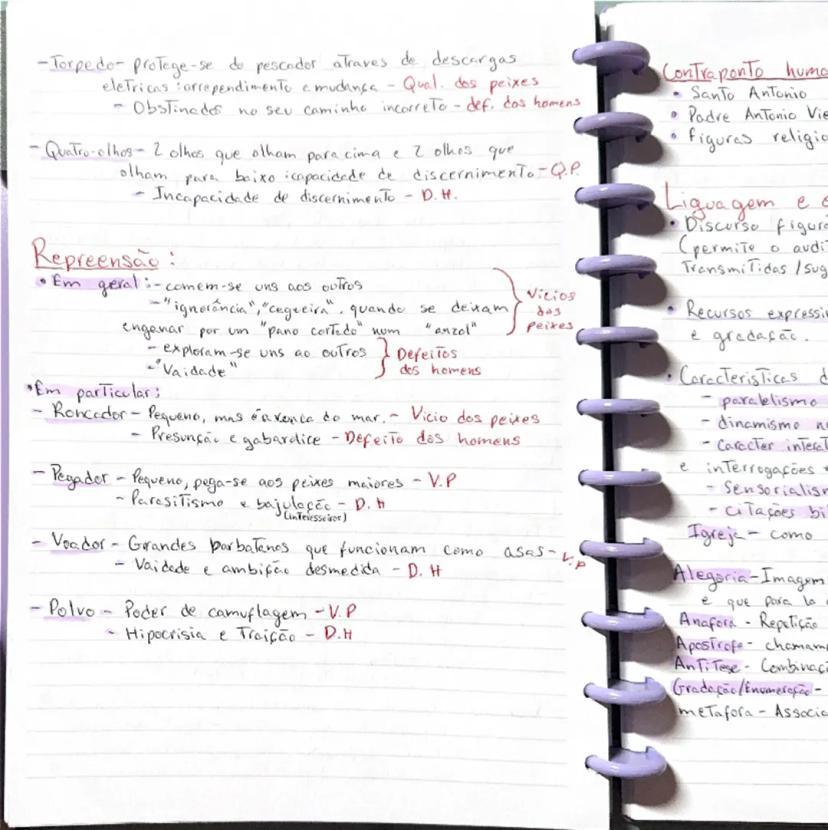 - Torpedo - protege-se do pescador atraves de descargas
eletricas : arrependimento e mudança - Qual. dos peixes
- Obstinados no seu caminho incorreto - def. dos homens
- Quatro-olhos - 2 olhos que olham para cima e 2 olhos que
olham para baixo : capacidade de discernimento - Q.P.
- Incapacidade de discernimento - D.H.
Repreensão :
• Em geral : - comem-se uns aos outros
- "ignorância", "cegueira", quando se deixam
enganar por um "pano cortado" num "anzol"
Vicios
dos
peixes
- exploram-se uns ao outros
- "Vaidade"
Defeitos
dos homens
• Em particular :
- Roncador - Pequeno, mas é a ronca do mar. - Vicio dos peixes
- Presunção e gabardice - Defeito dos homens
- Pegador - Pequeno, pega-se aos peixes maiores - V.P
- Parasitismo e bajulação - D.H
(interesseiros)
- Voador - Grandes barbatanas que funcionam como asas - V.P
- Vaidade e ambição desmedida - D.H
- Polvo - Poder de camuflagem - V.P
- Hipocrisia e Traição - D.H
Contraponto huma
• Santo Antonio
• Padre Antonio Vie
• figuras religio
Liguagem e e
• Discurso figur
(permite o audi
Transmitidas / sug
• Recursos expressi
e gradação.
• Caracteristicas d
- paralelismo
- dinamismo n
- caracter interat
e interrogações
- Sensorialism
- citações bi
Igreja - como
Alegoria - Imagem
e que para la
Anafora - Repetição
Apostrofe - chamam
Antitese - Combinaci
Gradação/Enumeração -
metafora - Associa